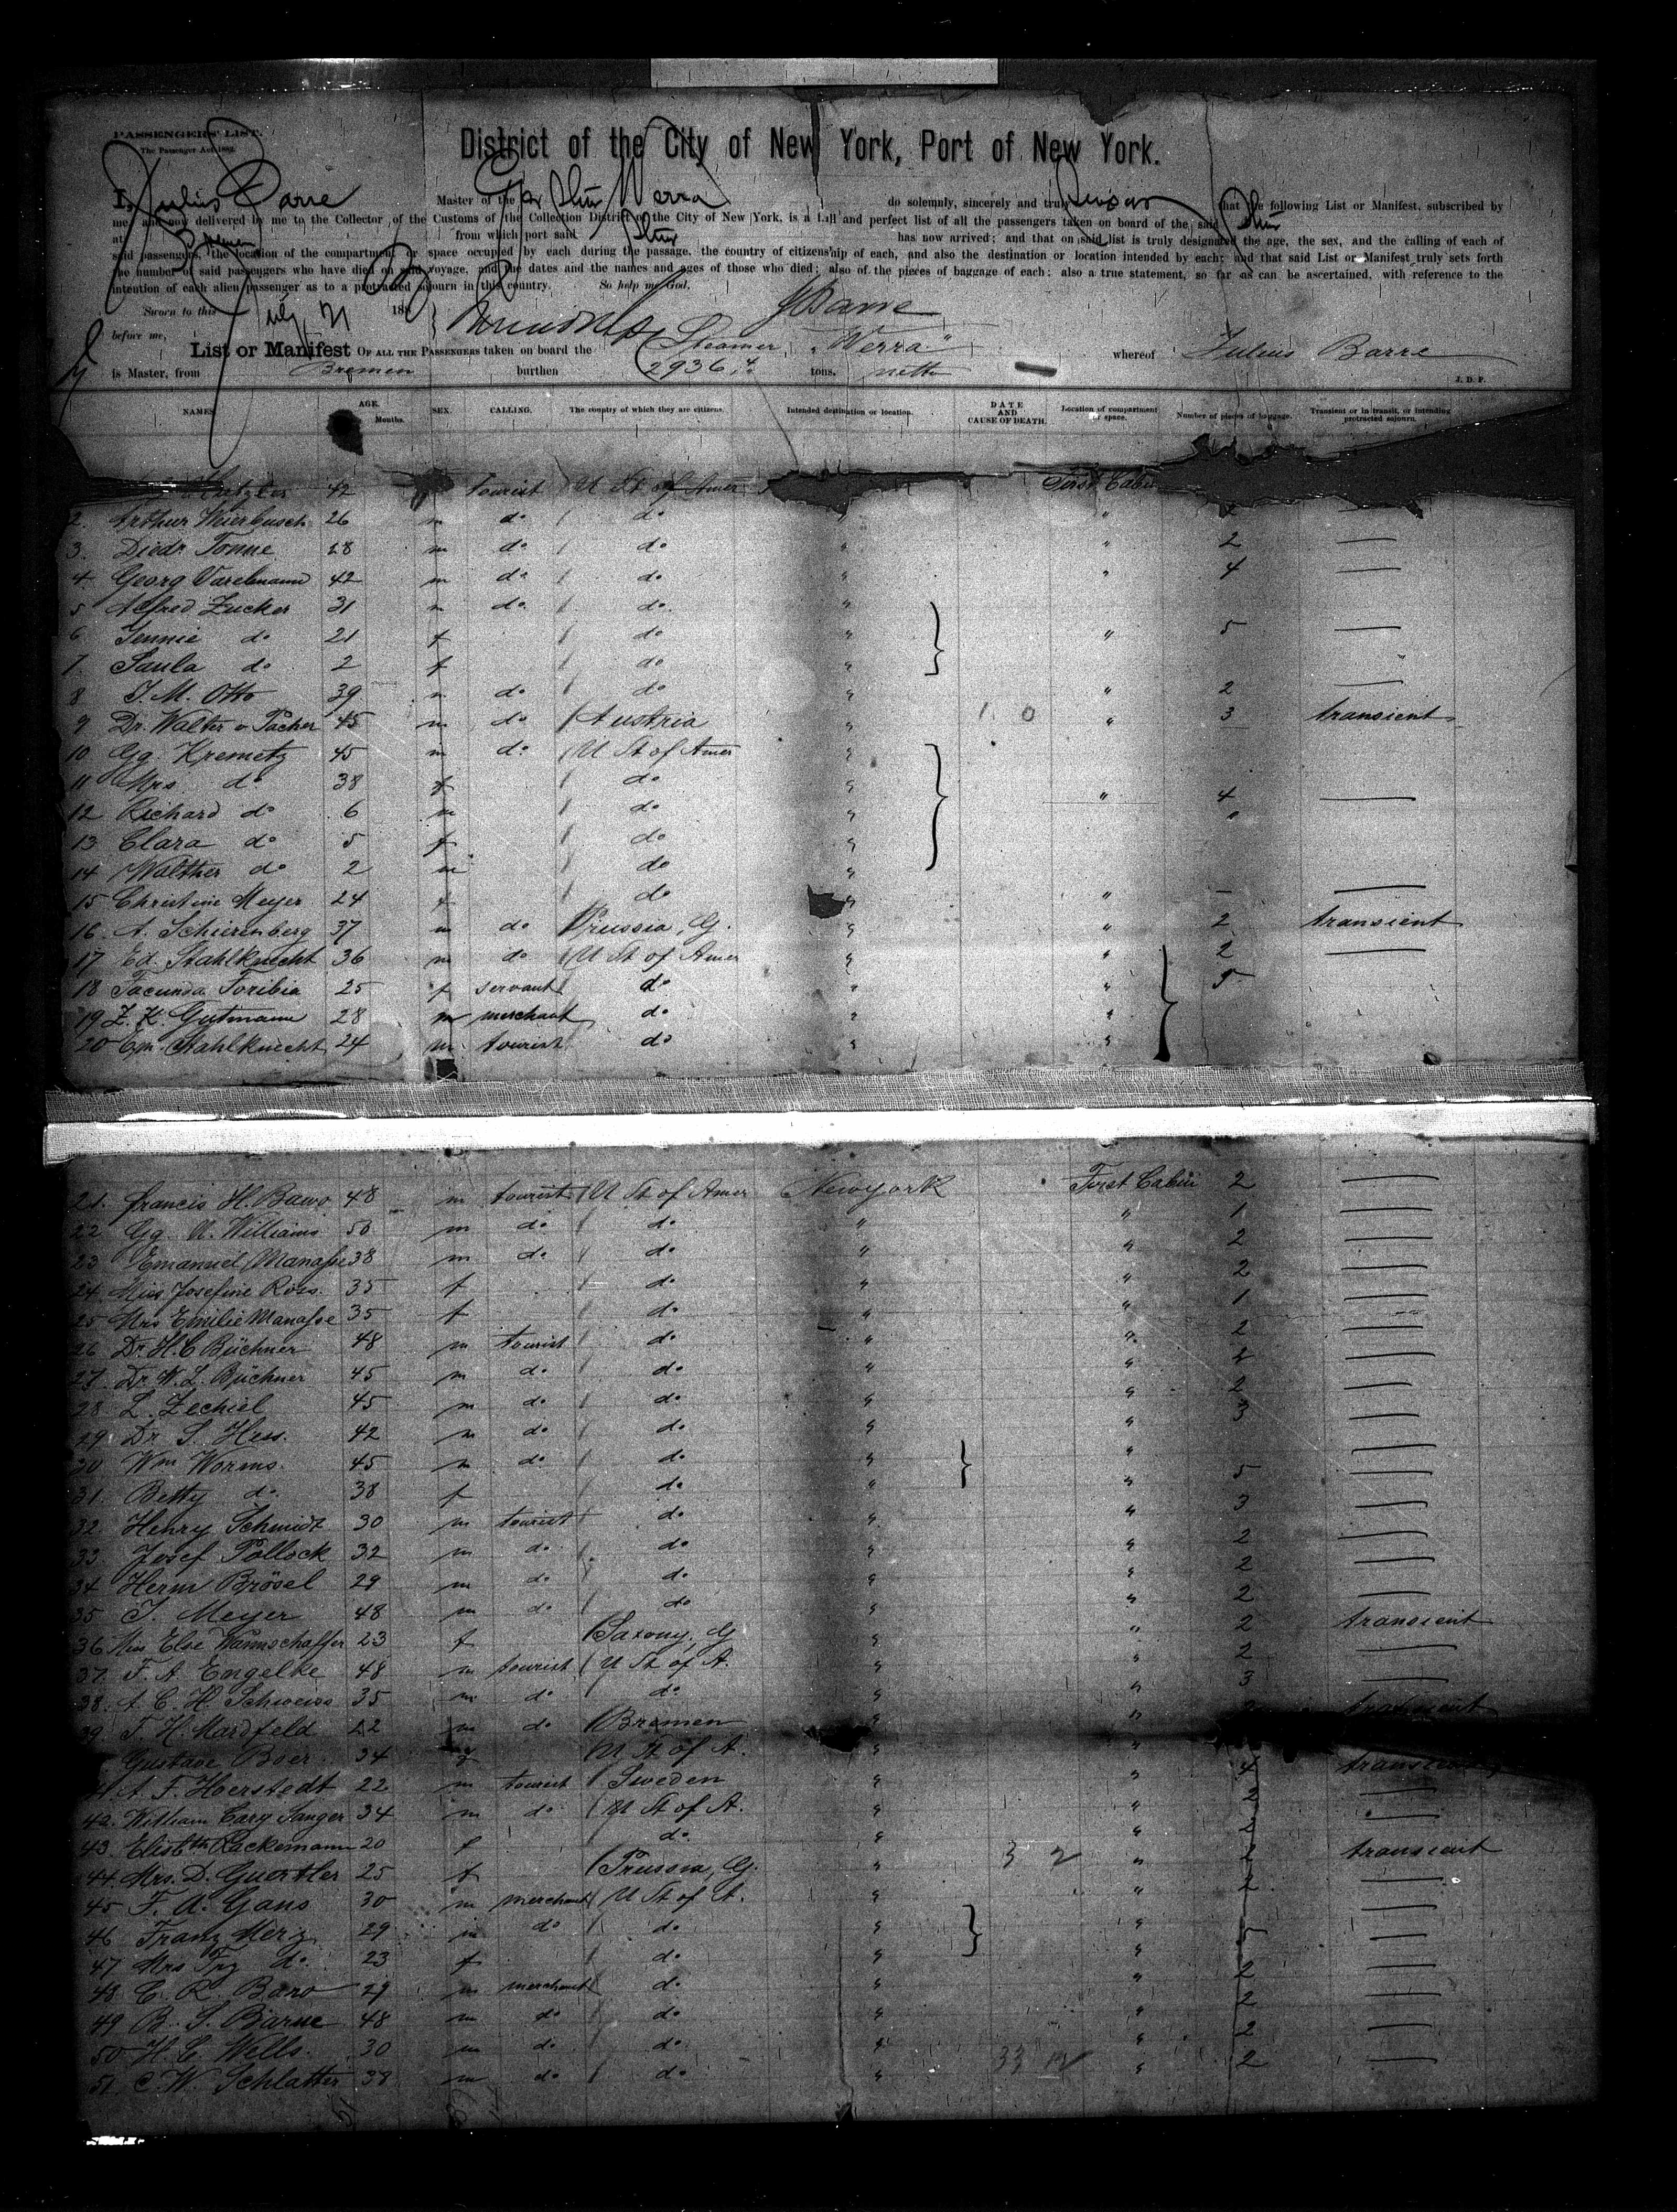 PASSENGERS' LIST.
The Passenger Act 1882.
District of the City of New York, Port of New York.
I, Julius Barre Master of the Werra do solemnly, sincerely and truly that the following List or Manifest, subscribed by
me and now delivered by me to the Collector of the Customs of the Collection District of the City of New York, is a full and perfect list of all the passengers taken on board of the said
at Bremen from which port said has now arrived; and that on said list is truly designated the age, the sex, and the calling of each of
said passengers, the location of the compartment or space occupied by each during the passage, the country of citizenship of each, and also the destination or location intended by each; and that said List or Manifest truly sets forth
the number of said passengers who have died on said voyage, and the dates and the names and ages of those who died; also of the pieces of baggage of each: also a true statement, so far as can be ascertained, with reference to the
intention of each alien passenger as to a protracted sojourn in this country. So help me God,
Sworn to this July 21 188 JBarre
before me,
List or Manifest OF ALL THE PASSENGERS taken on board the Steamer "Werra" whereof Julius Barre
is Master, from Bremen burthen 2936 tons. netto
J. D. P.
NAMES AGE. Months. SEX. CALLING. The country of which they are citizens. Intended destination or location. DATE AND CAUSE OF DEATH. Location of compartment or space. Number of pieces of baggage. Transient or in transit, or intending protracted sojourn.
42 tourist U St of Amer First Cabin
2. Arthur Weierbusch 26 m do do " "
3. Diedr Tonne 28 m do do " " 2 —
4 Georg Varelmann 42 m do do " " 4 —
5 Alfred Zucker 31 m do do "
6 Jennie do 21 f do " " 5 —
7. Paula do 2 f do "
8 J. M. Otto 39 m do do " " 2 —
9 Dr. Walter v Pacher 45 m do Austria " 1 0 " 3 transient
10 Gg. Krementz 45 m do U St of Amer "
11 Mrs. do 38 f do "
12 Richard do 6 m do " " 4 —
13 Clara do 5 f do "
14 Walther do 2 m do "
15 Christine Meyer 24 f do " " — —
16. A. Schierenberg 37 m do Prussia, G. " " 2 transient
17 Ed. Stahlknecht 36 m do U St of Amer " " 2 —
18 Facunda Toribia 25 f servant do " " 5
19 Z. K. Gutmann 28 m merchant do " "
20 Em. Stahlknecht 24 m tourist do " "
21. Francis H. Bawo 48 m tourist U St of Amer Newyork First Cabin 2 —
22 Gg. A. Williams 50 m do do " " 1 —
23 Emanuel Manasse 38 m do do " " 2 —
24 Miss Josefine Ross. 35 f do " " 2 —
25 Mrs Emilie Manasse 35 f do " " 1 —
26 Dr. H. C Büchner 48 m tourist do " " 2 —
27. Dr. W. L. Büchner 45 m do do " " 2 —
28 L. Zechiel 45 m do do " " 2 —
29 Dr S. Hess. 42 m do do " " 3 —
30 Wm Worms. 45 m do do " "
31. Betty do. 38 f do " " 5 —
32. Henry Schmidt 30 m tourist do " " 3 —
33 Josef Pollock 32 m do do " " 2 —
34 Herm Brösel 29 m do do " " 2 —
35 J. Meyer 48 m do do " " 2 —
36 Miss Else Wannschaffer 23 f Saxony, G " " 2 transient
37. F. A. Engelke 48 m tourist U St of A. " " 2 —
38. A. C. H. Schweiss 35 m do do " " 3 —
39. F. H. Mardfeld 22 m do Bremen " " transient
Gustave Boer. 34 U St of A. " "
41 A. F. Hoerstedt 22 m tourist Sweden " " 4 transient
42. William Cary Sanger 34 m do U St of A. " " 2 —
43. Elisbth Rackemann 20 f do " " 2 —
44. Mrs. D. Guertler 25 f Prussia, G. " 3 2 " 2 transient
45 F. A. Gans 30 m merchant U St of A. " " 2 —
46 Franz Merz 29 m do do " " —
47 Mrs do. 23 f do " " 5 —
48 C. R. Baro 29 m merchant do " " 2 —
49 B. S. Barue 48 m do do " " 2 —
50 H. C. Wells. 30 m do do " " 2 —
51. C. W. Schlatter 38 m do do " 33 " 2 —